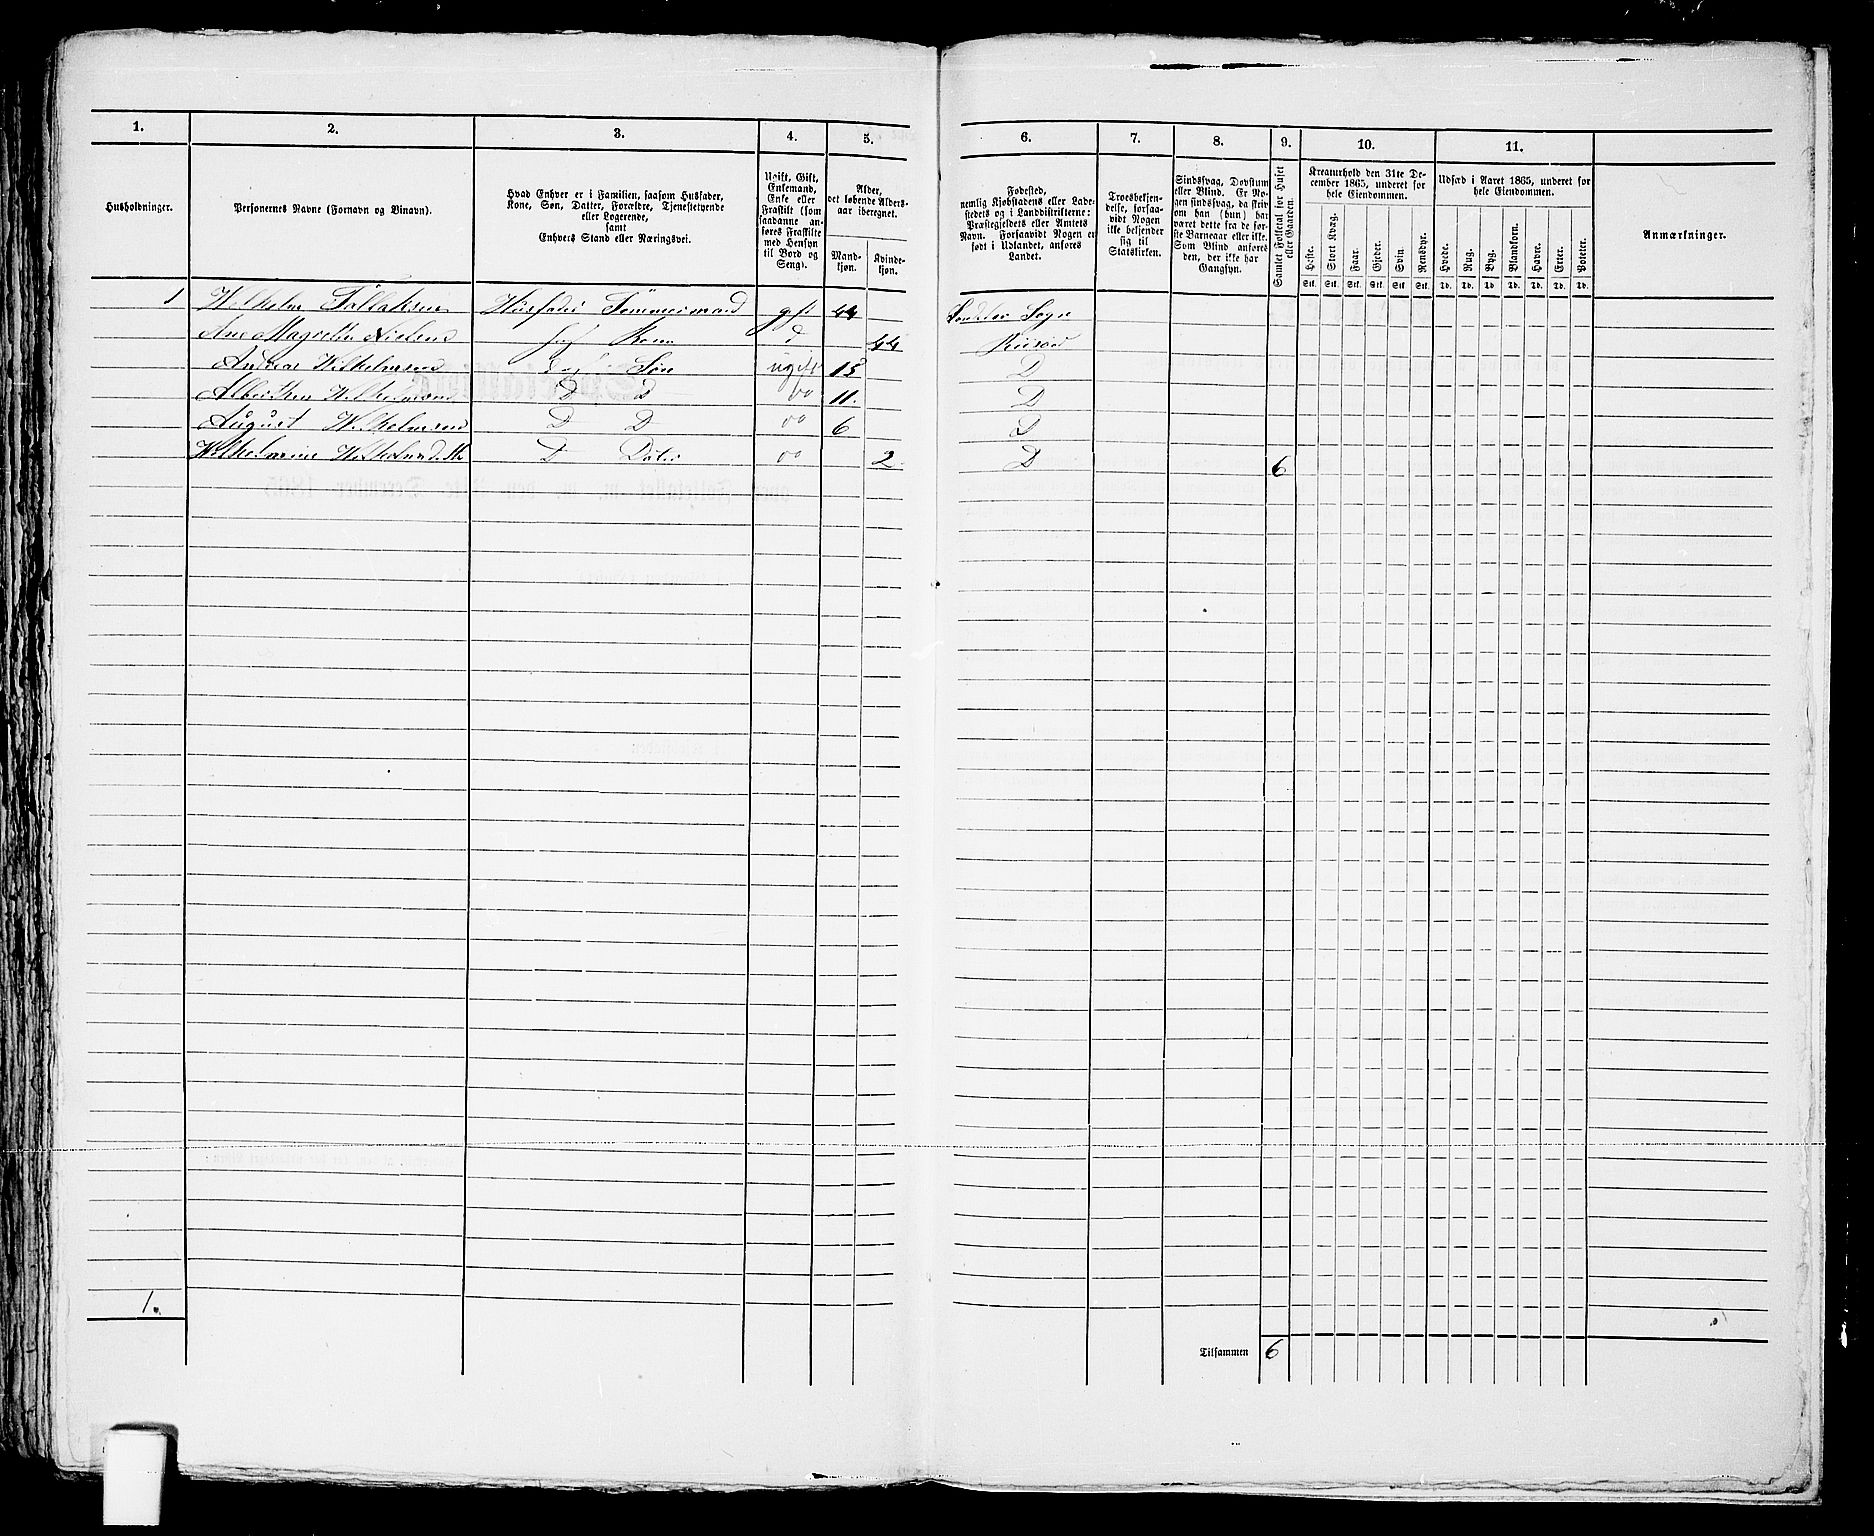 1.
2.
3.
4.
5.
6.
7.
8.
9.
10.
11.
Husholdninger.
Personernes Navne (Fornavn og Binavn).
Hvad Enhver er i Familien, saasom Husfader,
Kone, Søn, Datter, Forældre, Tjenestetyende
eller Logerende,
samt
Enhvers Stand eller Næringsvei.
Ugift, Gift,
Enkemand,
Enke eller
Fraskilt (som
saadanne an-
føres Fraskilte
med Hensyn
til Bord og
Seng).
Alder,
det løbende Alders-
aar iberegnet.
Mand-
kjøn.
Kvinde-
kjøn.
Fødested,
nemlig Kjøbstadens eller Lade-
stedets og i Landdistrikterne:
Præstegjeldets eller Amtets
Navn. Forsaavidt Nogen er
født i Udlandet, anføres
Landet.
Troesbekjen-
delse, forsaa-
vidt Nogen
ikke bekjender
sig til
Statskirken.
Sindssvag, Døvstum
eller Blind. Er No-
gen sindssvag, da skriv
om han (hun) har
været dette fra de før-
ste Barneaar eller ikke.
Som Blind anføres
den, der ikke har
Gangsyn.
Samlet Folketal for Huset
eller Gaarden.
Kreaturhold den 31te De-
cember 1865, underet for
hele Eiendommen.
Heste.
Stort Kvæg.
Faar.
Gjeder.
Svin.
Rensdyr.
Stk. Stk. Stk. Stk. Stk Stk.
Udsæd i Aaret 1865, underet for
hele Eiendommen.
Hvede.
Rug.
Byg.
Blandkorn.
Havre.
Erter.
Poteter.
Td. Td. Td. Td. Td. Td. Td.
Anmærkninger.
1 Wilhelm Tallaksen Husfader Tømmermand gift 44 Sogn
Ane Magrethe Nielsen Kone d 44 Riisøer
Andreas Wilhelmsen Søn ugift 15 D
Wilhelmsen D d 11. D
August Wilhelmsen D D 6 D
Wilhelmine D Dater 2 D 6
1.
Tilsammen 6